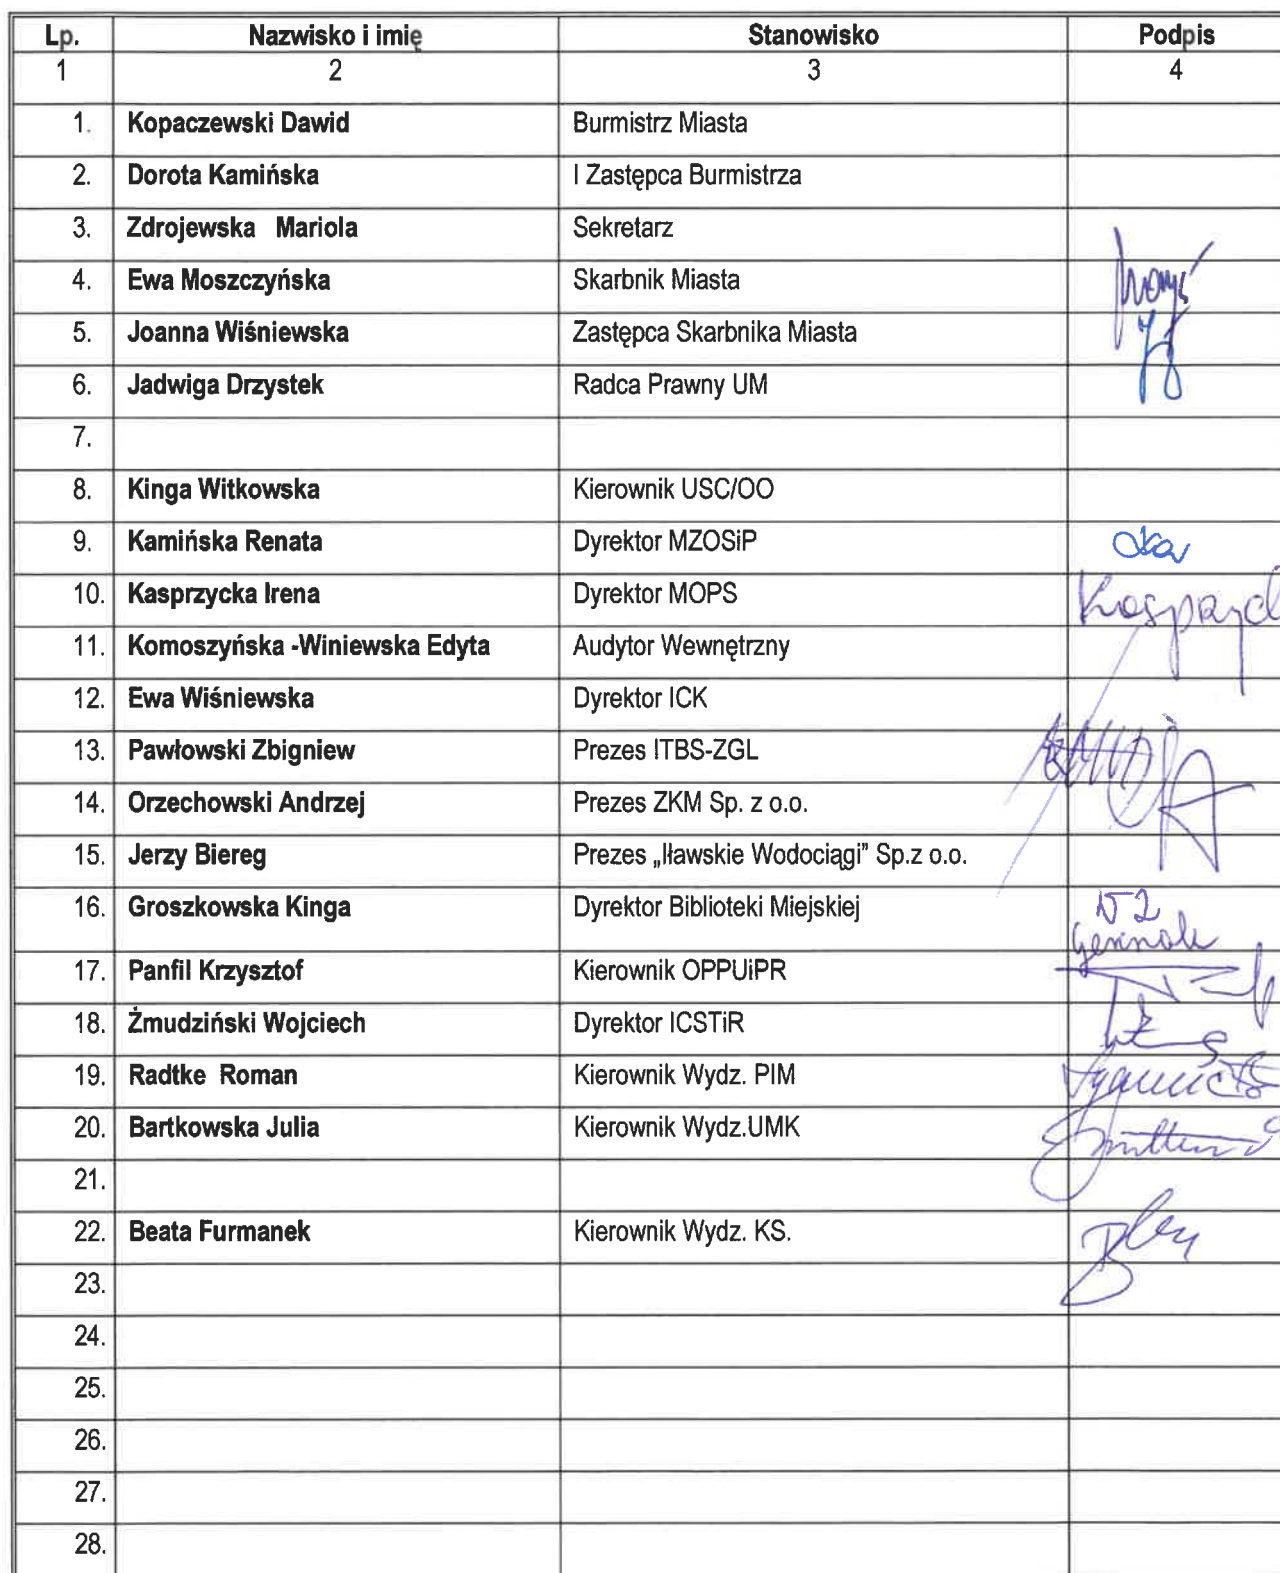 Lp. Nazwisko i imię Stanowisko Podpis
1 2 3 4
1. Kopaczewski Dawid Burmistrz Miasta
2. Dorota Kamińska I Zastępca Burmistrza
3. Zdrojewska Mariola Sekretarz
4. Ewa Moszczyńska Skarbnik Miasta
5. Joanna Wiśniewska Zastępca Skarbnika Miasta
6. Jadwiga Drzystek Radca Prawny UM
7.
8. Kinga Witkowska Kierownik USC/OO
9. Kamińska Renata Dyrektor MZOSiP
10. Kasprzycka Irena Dyrektor MOPS
11. Komoszyńska -Winiewska Edyta Audytor Wewnętrzny
12. Ewa Wiśniewska Dyrektor ICK
13. Pawłowski Zbigniew Prezes ITBS-ZGL
14. Orzechowski Andrzej Prezes ZKM Sp. z o.o.
15. Jerzy Biereg Prezes „Iławskie Wodociągi” Sp.z o.o.
16. Groszkowska Kinga Dyrektor Biblioteki Miejskiej
17. Panfil Krzysztof Kierownik OPPUiPR
18. Żmudziński Wojciech Dyrektor ICSTiR
19. Radtke Roman Kierownik Wydz. PIM
20. Bartkowska Julia Kierownik Wydz.UMK
21.
22. Beata Furmanek Kierownik Wydz. KS.
23.
24.
25.
26.
27.
28.